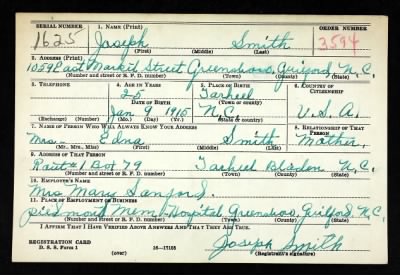 SERIAL NUMBER 1. NAME (Print) ORDER NUMBER
1625 Joseph Smith 3594
(First) (Middle) (Last)
2. ADDRESS (Print)
1059 East Market Street Greensboro, Guilford N.C.
(Number and street or R. F. D. number) (Town) (County) (State)
3. TELEPHONE 4. AGE IN YEARS 5. PLACE OF BIRTH 6. COUNTRY OF CITIZENSHIP
25 Tarheel
DATE OF BIRTH (Town or county)
Jan 9 1915 N.C. U.S.A.
(Exchange) (Number) (Mo.) (Day) (Yr.) (State or country)
7. NAME OF PERSON WHO WILL ALWAYS KNOW YOUR ADDRESS 8. RELATIONSHIP OF THAT PERSON
Mrs. Edna Smith Mother,
(Mr., Mrs., Miss) (First) (Middle) (Last)
9. ADDRESS OF THAT PERSON
Route 1 Box 79 Tarheel Bladen N.C.
(Number and street or R. F. D. number) (Town) (County) (State)
10. EMPLOYER'S NAME
Mrs Mary Sanford.
11. PLACE OF EMPLOYMENT OR BUSINESS
piedmont Mem. Hospital, Greensboro, Guilford, N.C.
(Number and street or R. F. D. number) (Town) (County) (State)
I AFFIRM THAT I HAVE VERIFIED ABOVE ANSWERS AND THAT THEY ARE TRUE.
Joseph Smith
REGISTRATION CARD
D. S. S. Form 1 (over) 16—17105 (Registrant's signature)